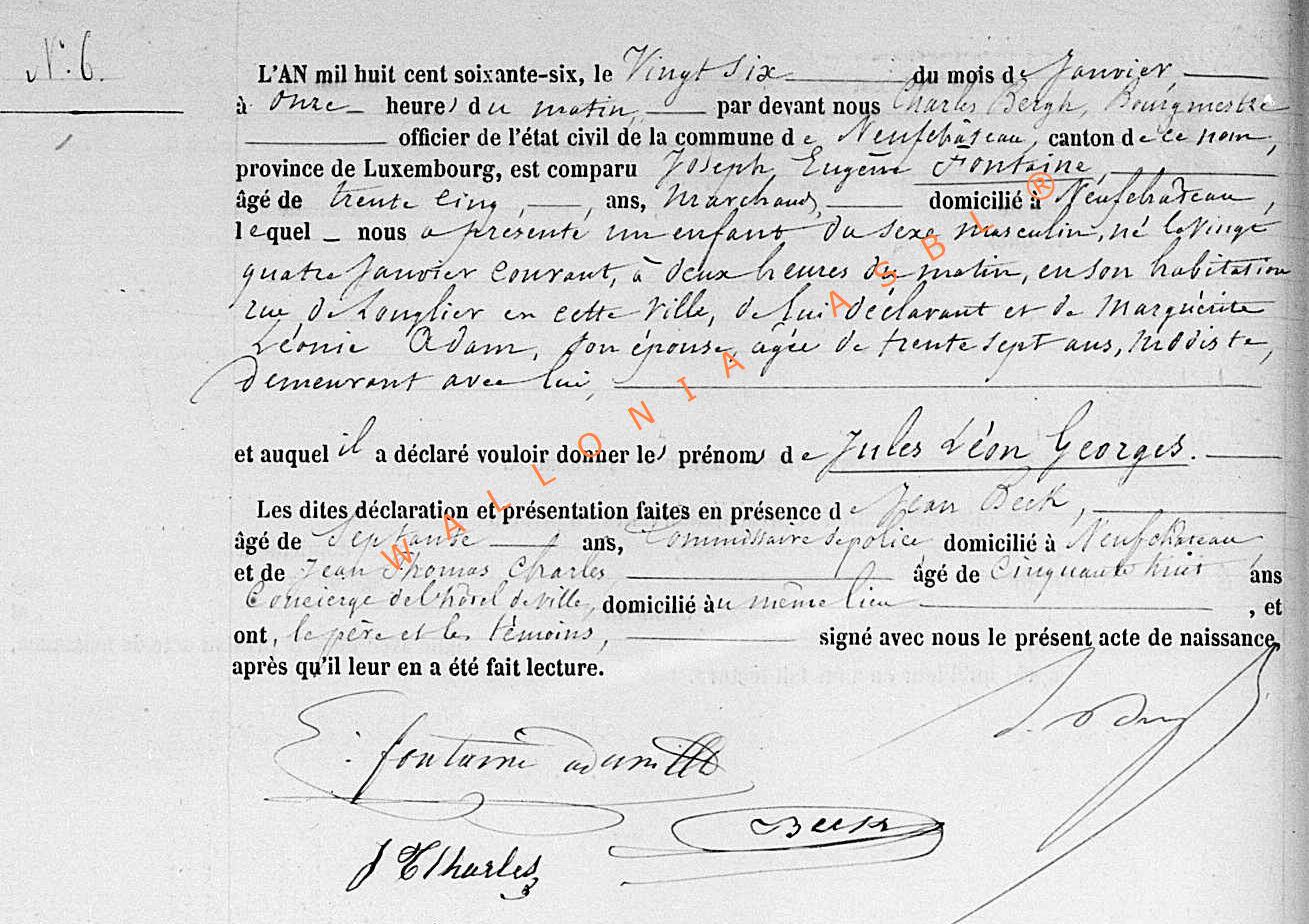 N° 6.
L'AN mil huit cent soixante-six, le Vingt six du mois de Janvier
à onze heures du matin, par devant nous Charles Bergh, Bourgmestre
officier de l'état civil de la commune de Neufchâteau, canton de ce nom,
province de Luxembourg, est comparu Joseph Eugène Fontaine,
âgé de trente cinq, ans, Marchand, domicilié à Neufchâteau,
lequel nous a présenté un enfant du sexe masculin, né le Vingt
quatre Janvier courant, à deux heures du matin, en son habitation
rue de Longlier en cette Ville, de lui déclarant et de Marguérite
Léonie Adam, son épouse, agée de trente sept ans, Modiste,
demeurant avec lui,
et auquel il a déclaré vouloir donner les prénoms de Jules Léon Georges.
Les dites déclaration et présentation faites en présence de Jean Beck,
âgé de Septante ans, Commissaire de police, domicilié à Neufchâteau
et de Jean Thomas Charles, âgé de Cinquante huit ans
Concierge de l'hôtel de ville, domicilié au même lieu, et
ont, le père et les témoins, signé avec nous le présent acte de naissance,
après qu'il leur en a été fait lecture.
E. fontaine adam
Beck
J T Charles
WALLONIA ASBL ®